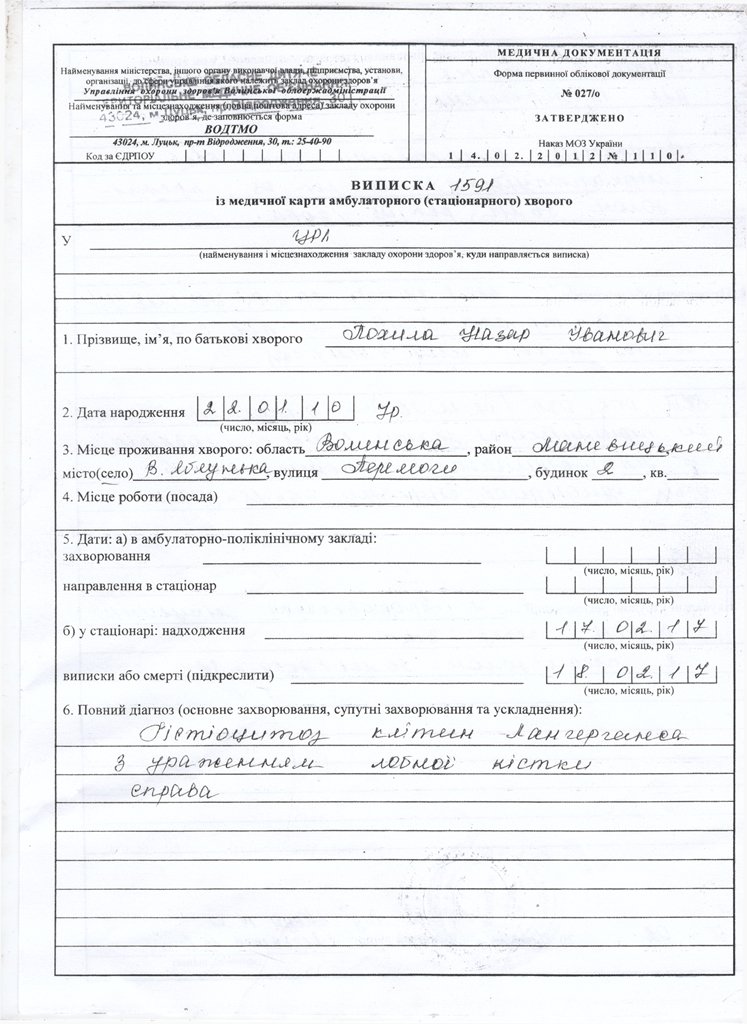 МЕДИЧНА ДОКУМЕНТАЦІЯ
Форма первинної облікової документації
№ 027/о
ЗАТВЕРДЖЕНО
Наказ МОЗ України
1 4. 0 2. 2 0 1 2 № 1 1 0.
Найменування міністерства, іншого органу виконавчої влади, підприємства, установи,
організації, до сфери управління якого належить заклад охорони здоров'я
Управління охорони здоров'я Волинської облдержадміністрації
Найменування та місцезнаходження (повна поштова адреса) закладу охорони
здоров'я, де заповнюється форма
ВОДТМО
43024, м. Луцьк, пр-т Відродження, 30, т.: 25-40-90
Код за ЄДРПОУ
ВОЛИНСЬКЕ ОБЛАСНЕ ДИТЯЧЕ
ТЕРИТОРІАЛЬНЕ МЕДИЧНЕ ОБ'ЄДНАННЯ
43024, м. ЛУЦЬК, пр. ВІДРОДЖЕННЯ, 30
ВИПИСКА 1591
із медичної карти амбулаторного (стаціонарного) хворого
У ЦРЛ
(найменування і місцезнаходження закладу охорони здоров'я, куди направляється виписка)
1. Прізвище, ім'я, по батькові хворого Похила Назар Іванович
2. Дата народження 2 2. 0 1. 1 0 Ур.
(число, місяць, рік)
3. Місце проживання хворого: область Волинська, район Маневицький
місто(село) В. Яблунька, вулиця Перемоги, будинок 2, кв.
4. Місце роботи (посада)
5. Дати: а) в амбулаторно-поліклінічному закладі:
захворювання
(число, місяць, рік)
направлення в стаціонар
(число, місяць, рік)
б) у стаціонарі: надходження 1 7. 0 2. 1 7
(число, місяць, рік)
виписки або смерті (підкреслити) 1 8. 0 2. 1 7
(число, місяць, рік)
6. Повний діагноз (основне захворювання, супутні захворювання та ускладнення):
Гістіоцитоз клітин Лангерганса
з ураженням лобної кістки
справа